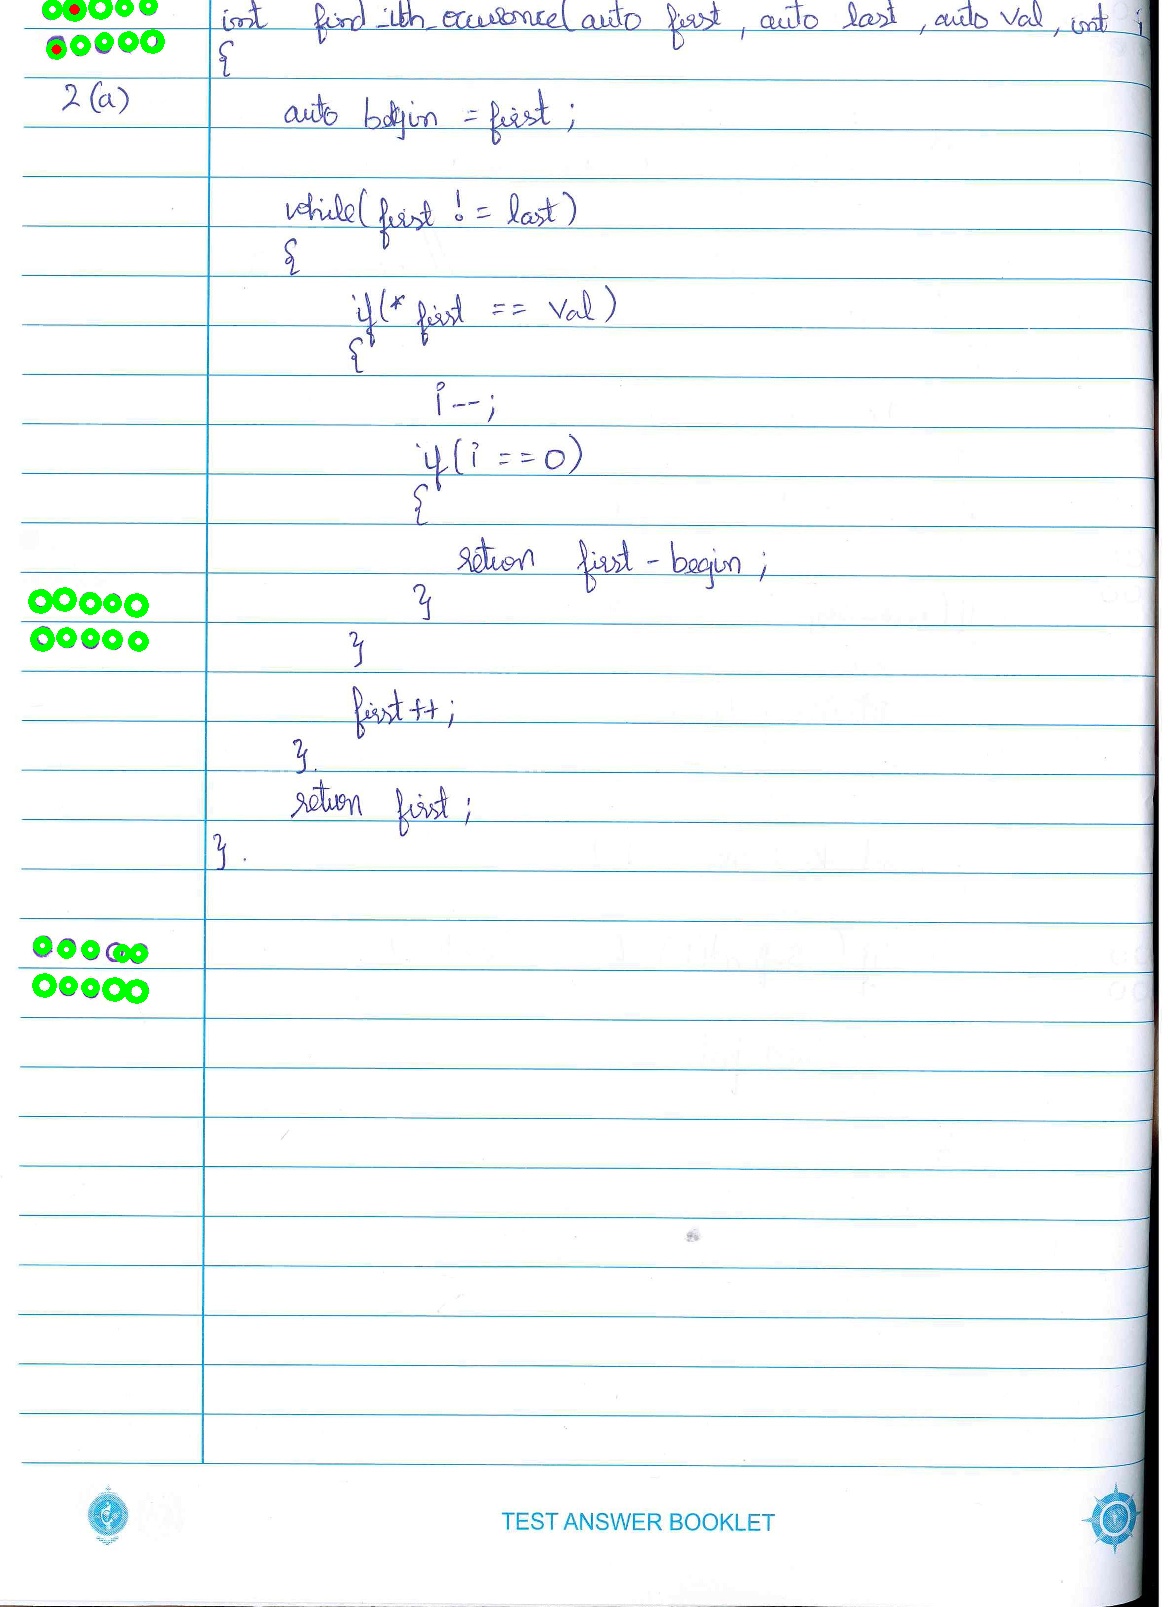 int find_ith_occurence(auto first, auto last, auto val, int i
{
2(a)
auto begin = first;
while(first != last)
{
if(*first == val)
{
i--;
if(i == 0)
{
return first - begin;
}
}
first++;
}.
return first;
}.
TEST ANSWER BOOKLET